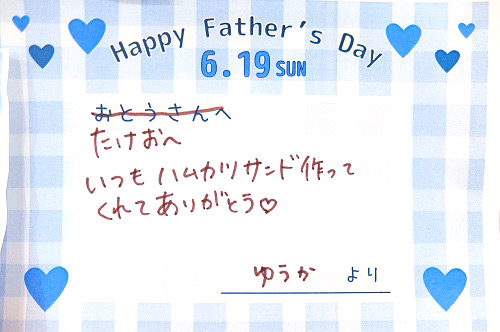 Happy Father's Day
6.19 SUN
おとうさんへ
たけおへ
いつも ハムカツサンド作って
くれてありがとう♡
ゆうか より